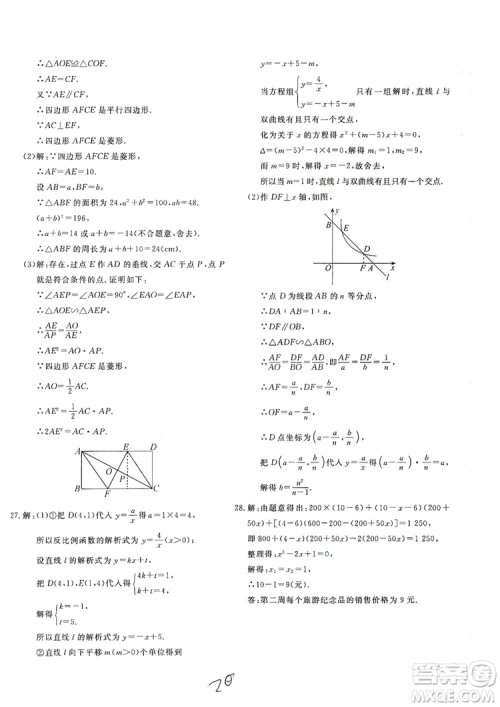 ∴△AOE≌△COF.
∴AE=CF.
又∵AE∥CF,
∴四边形 AFCE 是平行四边形.
∵AC⊥EF,
∴四边形 AFCE 是菱形.
(2)解:∵四边形 AFCE 是菱形,
∴AF=AE=10.
设 AB=a,BF=b,
∵△ABF 的面积为 24,a²+b²=100,
(a+b)²=196,
∴a+b=14 或 a+b=-14(不合题意,舍去).
∴△ABF 的周长为 a+b+10=24(cm).
(3)解:存在,过点 E 作 AD 的垂线,交 AC 于点 P,点 P
就是符合条件的点.证明如下:
∵∠AEP=∠AOE=90°,∠EAP=∠EAO,
∴△AOE∽△AEP.
∴AE/AP=AO/AE.
∴AE²=AO·AP.
∵四边形 AFCE 是菱形,
∴AO=1/2 AC.
∴AE²=1/2 AC·AP.
∴2AE²=AC·AP.
A E D
O
P
B F C
27.解:(1)①把 D(4,1)代入 y=a/x 得 a=4,
所以反比例函数的解析式为 y=4/x(x>0);
设直线 l 的解析式为 y=kx+t,
把 D(4,1),E(1,4)代入得{4k+t=1, k+t=4,
解得{k=-1, t=5.
所以直线 l 的解析式为 y=-x+5.
②直线 l 向下平移 m(m>0)个单位得到
y=-x+5-m,
当方程组{y=4/x, y=-x+5-m 只有一组解时,直线 l 与
双曲线有且只有一个交点,
化为关于 x 的方程得 x²+(m-5)x+4=0,
Δ=(m-5)²-4×4=0,解得 m=1 或 m=9,
而 m=9 时,解得 x=-2,故舍去,
所以当 m=1 时,直线 l 与双曲线有且只有一个交点.
(2)作 DF⊥x 轴,如图.
y
B
D
O F A x
l
∵点 D 为线段 AB 的 n 等分点,
∴DA:AB=1:n.
∵DF∥OB,
∴△ADF∽△ABO.
∴AF/AO=DF/BO=AD/AB,即AF/a=DF/b=1/n.
∴AF=a/n,DF=b/n.
∴OF=a-a/n.
∴D 点坐标为(a-a/n,b/n).
把 D(a-a/n,b/n)代入 y=a/x 得(a-a/n)·b/n=a,
解得 b=n²/(n-1).
28.解:由题意得出:200×(10-6)+(10-x-6)(200+
50x)+[(4-6)(600-200-(200+50x)]=1 250,
即 800+(4-x)(200+50x)-2(200-50x)=1 250,
整理得:x²-2x+1=0,
解得:x₁=x₂=1,
∴10-1=9(元).
答:第二周每个旅游纪念品的销售价格为 9 元.
20
答案圈
MXQE.COM